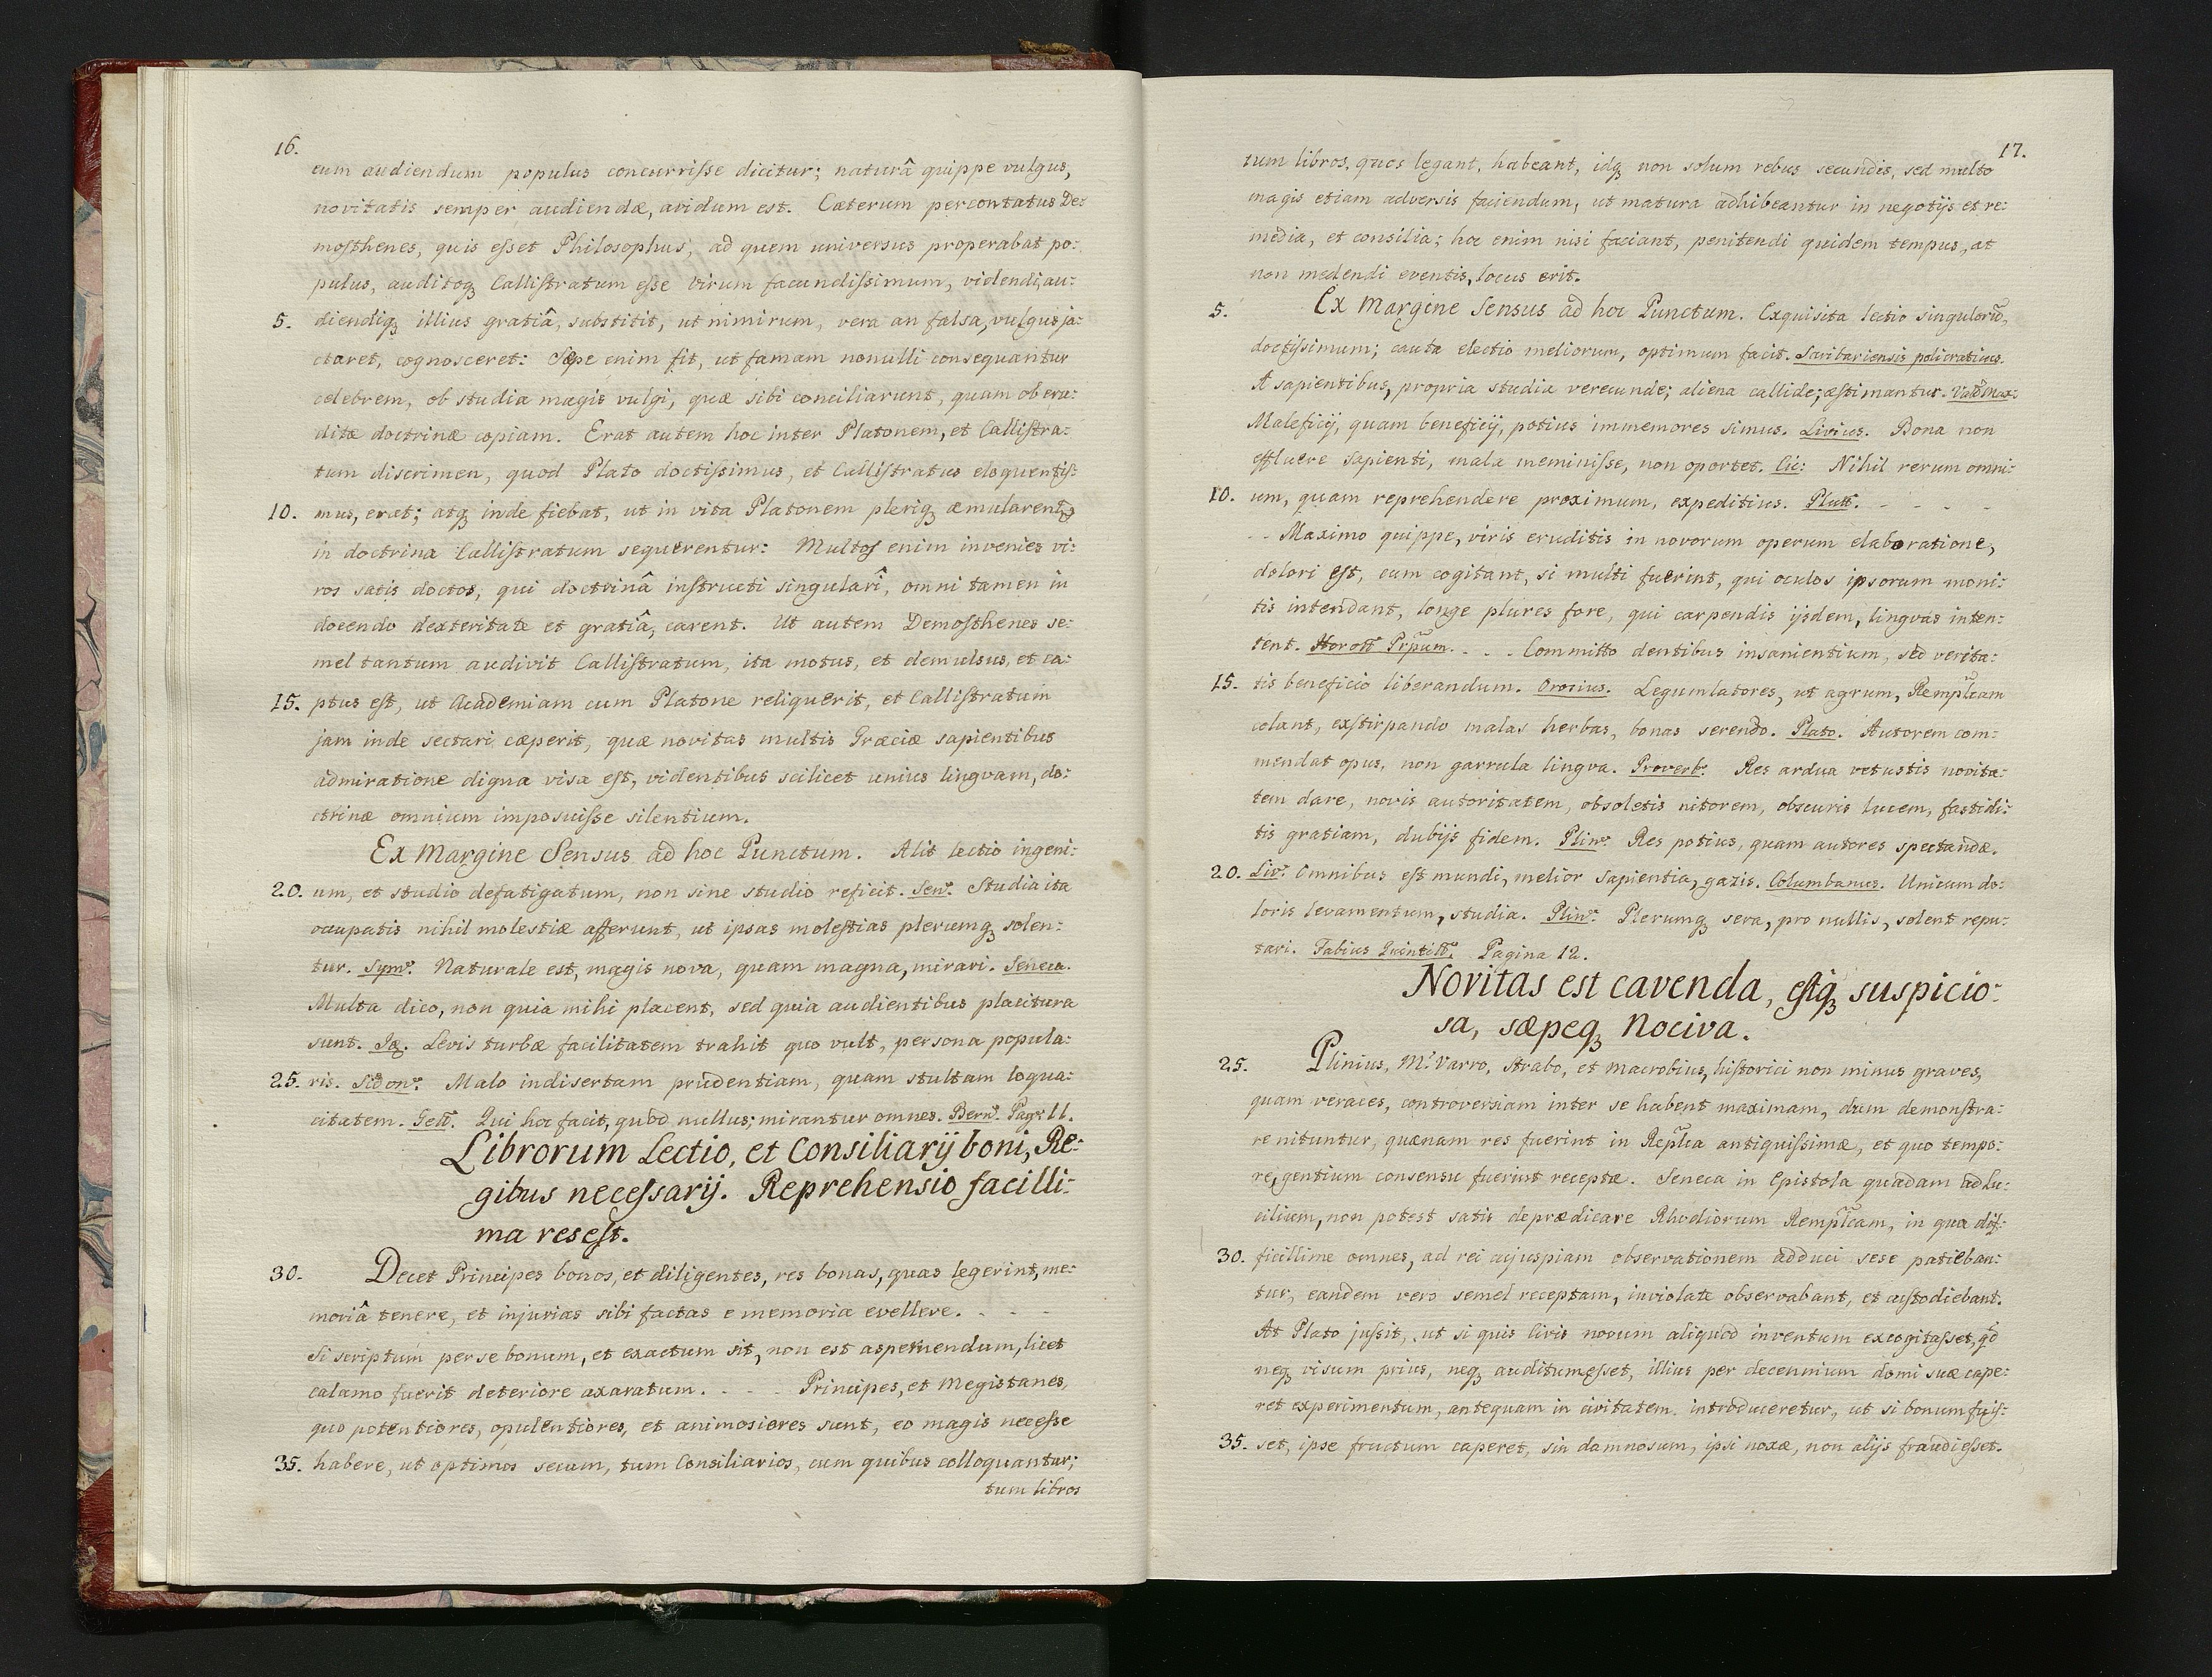 16.
eum audiendum populus concurrisse dicitur; naturâ quippe vulgus,
novitatis semper audiendæ, avidum est. Cæterum percontatus De:
mosthenes, quis esset Philosophus, ad quem universus properabat po:
pulus, auditoq; Callistratum esse virum facundissimum, videndi, au:
5. diendiq; illius gratiâ, substitit, ut nimirum, vera an falsa, vulgus ja:
ctaret, cognosceret: Sæpe enim fit, ut famam nonulli consequantur
celebrem, ob studia magis vulgi, quæ sibi conciliarunt, quam ob eru:
ditæ doctrinæ copiam. Erat autem hoc inter Platonem, et Callistra:
tum discrimen, quod Plato doctissimus, et Callistratus eloquentis:
10. mus, erat; atq; inde fiebat, ut in vita Platonem pleriq; æmularent
in doctrina Callistratum sequerentur: Multos enim invenies vi:
ros satis doctos, qui doctrinâ instructi singularî, omni tamen in
docendo dexteritate et gratiâ, carent. Ut autem Demosthenes se:
mel tantum audivit Callistratum, ita motus, et demulsus, et ca:
15. ptus est, ut Academiam cum Platone reliquerit, et Callistratum
jam inde sectari cæperit, quæ novitas multis Græciæ sapientibus
admiratione digna visa est, videntibus scilicet unius lingvam, do:
ctrinæ omnium imposuisse silentium.
Ex Margine Sensus ad hoc Punctum. Alit lectio ingeni:
20. um, et studio defatigatum, non sine studio reficit. Sen. Studia ita
occupatis nihil molestiæ afferunt, ut ipsas molestias plerumq; solen:
tur. Sym. Naturale est, magis nova, quam magna, mirari. Seneca.
Multa dico, non quia mihi placent, sed quia audientibus placitura
sunt. Levis turbæ facilitatem trahit quo vult, persona popula:
25. ris. Sidon. Malo indisertam prudentiam, quam stultam loqua:
citatem. Gell. Qui hoc facit, quod nullus; mirantur omnes. Bern. Pag. 11.
Librorum Lectio, et Consiliarij boni, Re:
gibus necessarij. Reprehensio facilli:
ma res est.
30. Decet Principes bonos, et diligentes, res bonas, quas legerint, me:
moriâ tenere, et injurias sibi factas e memoria evellere. - - -
Si scriptum per se bonum, et exactum sit, non est aspernendum, licet
calamo fuerit deteriore axaratum. - - - Principes, et Megistanes,
quo potentiores, opulentiores, et animosiores sunt, eo magis necesse
35. habere, ut optimos secum, tum Consiliarios, cum quibus colloquantur;
tum libros
17.
tum libros, quos legant, habeant, idq; non solum rebus secundis, sed multo
magis etiam adversis faciendum, ut matura adhibeantur in negotijs et re:
media, et consilia; hoc enim nisi faciant, penitendi quidem tempus, at
non medendi eventis, locus erit.
5. Ex Margine Sensus ad hoc Punctum. Exquisita lectio singulorū,
doctissimum; cauta electio meliorum, optimum facit. Saribariensis policraticus.
A sapientibus, propria studia verecunde; aliena callide; æstimantur. Val. Max:
Maleficij, quam beneficij, potius immemores simus. Livius. Bona non
effluere sapienti, mala meminisse, non oportet. Cic: Nihil rerum omni:
10. um, quam reprehendere proximum, expeditius. Plutt. - - - -
- - Maximo quippe, viris eruditis in novorum operum elaboratione,
dolori est, cum cogitant, si multi fuerint, qui oculos ipsorum moni:
tis intendant, longe plures fore, qui carpendis ijsdem, lingvas inten:
tent. - - - Committo dentibus insanientium, sed verita:
15. tis beneficio liberandum. Orosius. Legumlatores, ut agrum, Remplcam
colant, exstirpando malas herbas, bonas serendo. Plato. Autorem com:
mendat opus, non garrula lingva. Proverb. Res ardua vetustis novita:
tem dare, novis autoritatem, obsoletis nitorem, obscuris lucem, fastidi:
tis gratiam, dubijs fidem. Plin. Res potius, quam autores spectandæ.
20. Liv. Omnibus est mundi, melior sapientia, gazis. Columbanus. Unicum do:
loris levamentum, studia. Plin. Plerumq; sera, pro nullis, solent repu:
tari. Fabius Quintill. Pagina 12.
Novitas est cavenda, estq; suspicio:
sa, sæpeq; Nociva.
25. Plinius, M. Varro, Strabo, et Macrobius, historici non minus graves,
quam veraces, controversiam inter se habent maximam, dum demonstra:
re nituntur, quænam res fuerint in Replca antiquissimæ, et quo tempo:
re, gentium consensu fuerint receptæ. Seneca in Epistola quadam ad Lu:
cilium, non potest satis deprædicare Rhodiorum Remplcam, in qua dif:
30. ficillime omnes, ad rei cujuspiam observationem adduci sese patieban:
tur, eandem vero semel receptam, inviolate observabant, et custodiebant.
At Plato jussit, ut si quis Civis novum aliquod inventum excogitasset, qd
neq; visum prius, neq; auditum esset, illius per decennium domi suæ cape:
ret experimentum, antequam in civitatem introduceretur, ut si bonum fuis:
35. set, ipse fructum caperet, sin damnosum, ipsi noxæ, non alijs fraudi esset.